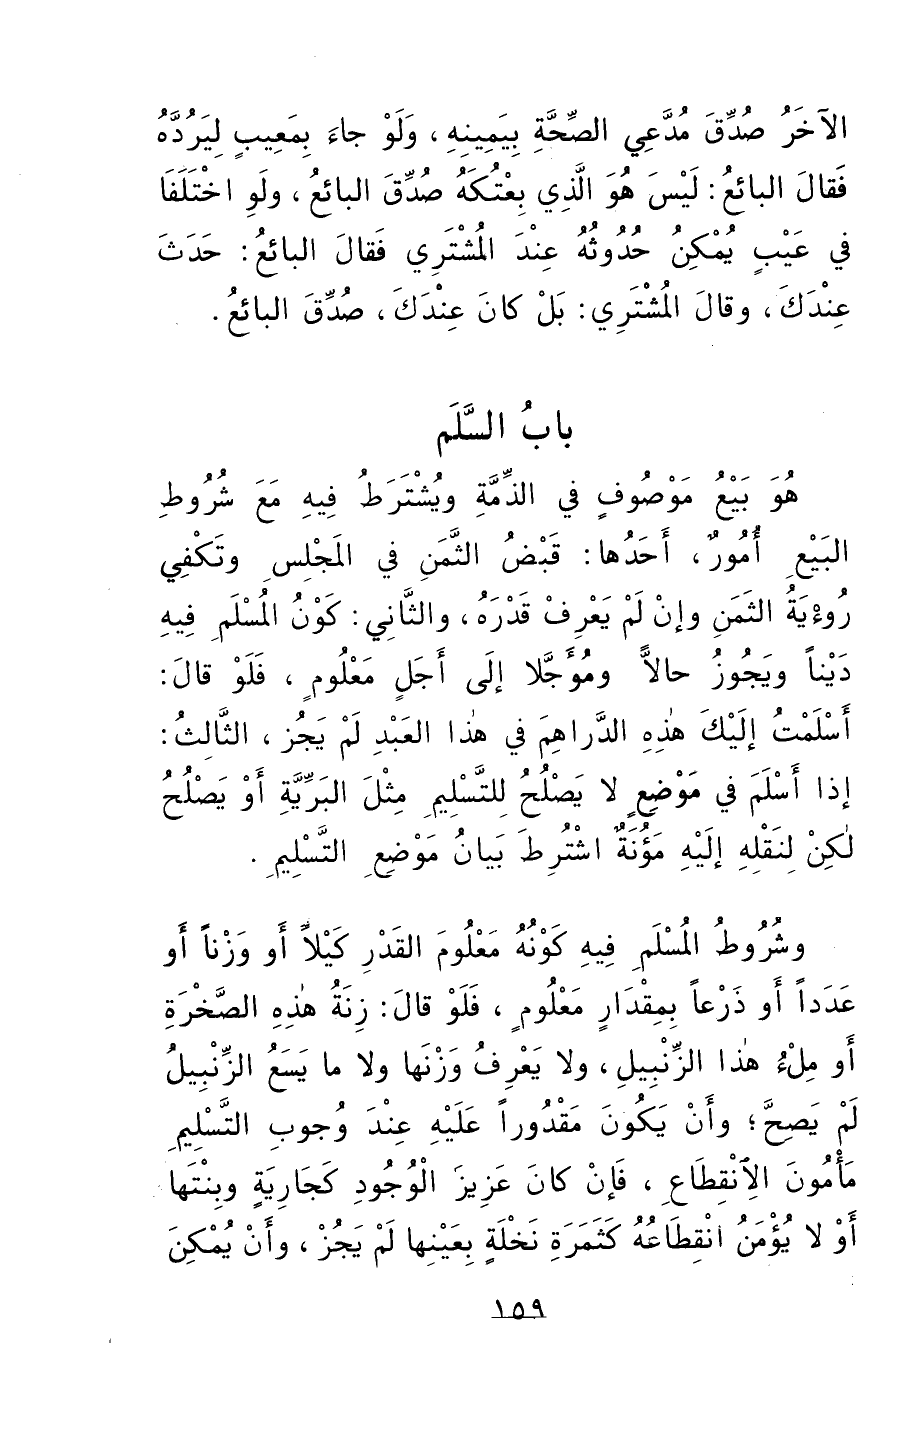 الآخَرُ صُدِّقَ مُدَّعِي الصِّحَّةِ بِيَمِينِهِ، وَلَوْ جاءَ بِمَعِيبٍ لِيَرُدَّهُ
فَقالَ البائعُ: لَيْسَ هُوَ الَّذِي بِعْتُكَهُ صُدِّقَ البائعُ، ولَوِ اخْتَلَفَا
في عَيْبٍ يُمْكِنُ حُدُوثُهُ عِنْدَ المُشْتَرِي فَقالَ البائعُ: حَدَثَ
عِنْدَكَ، وقالَ المُشْتَرِي: بَلْ كانَ عِنْدَكَ، صُدِّقَ البائعُ.
بابُ السَّلَم
هُوَ بَيْعُ مَوْصُوفٍ في الذِّمَّةِ ويُشْتَرَطُ فِيهِ مَعَ شُرُوطِ
البَيْعِ أُمُورٌ، أَحَدُها: قَبْضُ الثَّمَنِ في المَجْلِسِ وتَكْفِي
رُوءْيَةُ الثَمَنِ وإنْ لَمْ يَعْرِفْ قَدْرَهُ، والثَّاني: كَوْنُ المُسْلَمِ فِيهِ
دَيْناً ويَجُوزُ حالاًّ ومُؤَجَّلا إلَى أَجَلٍ مَعْلُومٍ، فَلَوْ قالَ:
أَسْلَمْتُ إلَيْكَ هٰذِهِ الدَّراهِمَ في هٰذا العَبْدِ لَمْ يَجُز، الثَّالثُ:
إذا أَسْلَمَ في مَوْضِعٍ لا يَصْلُحُ لِلتَّسْلِيمِ مِثْلَ البَرِّيَّةِ أَوْ يَصْلُحُ
لٰكِنْ لِنَقْلِهِ إلَيْهِ مَؤُنَةٌ اشْتُرِطَ بَيَانُ مَوْضِعِ التَّسْلِيمِ.
وشُرُوطُ المُسْلَمِ فِيهِ كَوْنُهُ مَعْلُومَ القَدْرِ كَيْلاً أَو وَزْناً أَو
عَدَداً أَو ذَرْعاً بِمِقْدَارٍ مَعْلُومٍ، فَلَوْ قالَ: زِنَةُ هٰذِهِ الصَّخْرَةِ
أَو مِلْءُ هٰذا الزِّنْبِيلِ، ولا يَعْرِفُ وَزْنَها ولا ما يَسَعُ الزِّنْبِيلُ
لَمْ يَصِحَّ؛ وأَنْ يَكُونَ مَقْدُوراً عَلَيْهِ عِنْدَ وُجوبِ التَّسْلِيمِ
مَأْمُونَ الاِنْقِطَاعِ، فَإنْ كانَ عَزِيزَ الْوُجُودِ كَجَارِيَةٍ وبِنْتَها
أَوْ لا يُؤْمَنُ انْقِطَاعُهُ كَثَمَرَةِ نَخْلَةٍ بِعَيْنِها لَمْ يَجُزْ، وأَنْ يُمْكِنَ
١٥٩